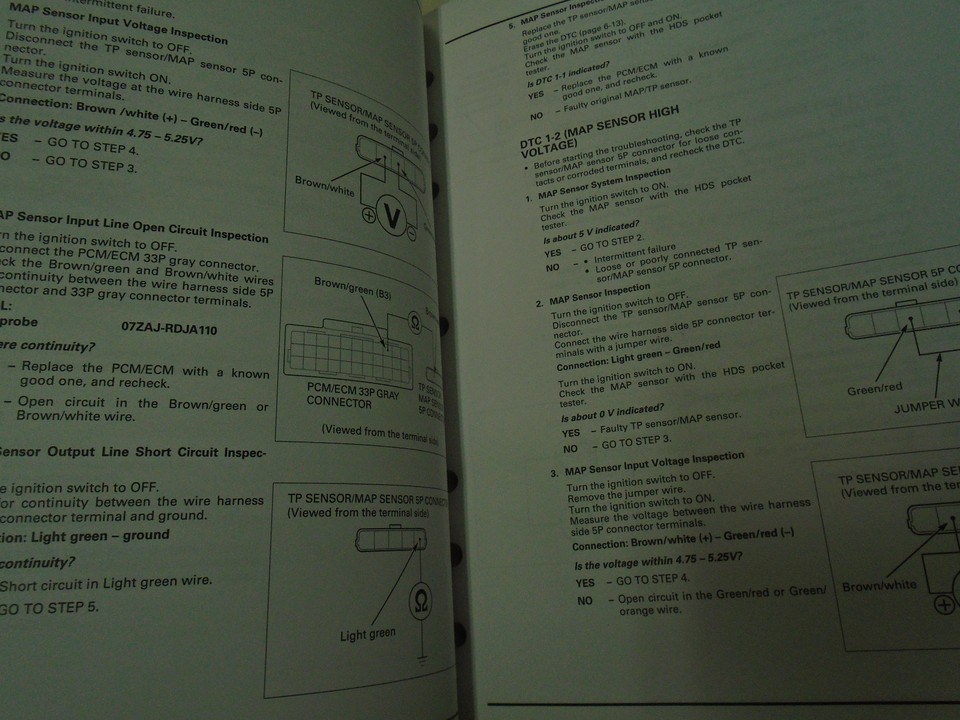 intermittent failure.
MAP Sensor Input Voltage Inspection
Turn the ignition switch to OFF.
Disconnect the TP sensor/MAP sensor 5P con-
nector.
Turn the ignition switch ON.
Measure the voltage at the wire harness side 5P
connector terminals.
Connection: Brown /white (+) – Green/red (–)
Is the voltage within 4.75 – 5.25V?
YES – GO TO STEP 4.
NO – GO TO STEP 3.
TP SENSOR/MAP SENSOR 5P
(Viewed from the terminal side)
Brown/white
V
MAP Sensor Input Line Open Circuit Inspection
Turn the ignition switch to OFF.
Disconnect the PCM/ECM 33P gray connector.
Check the Brown/green and Brown/white wires
continuity between the wire harness side 5P
connector and 33P gray connector terminals.
probe 07ZAJ-RDJA110
continuity?
– Replace the PCM/ECM with a known
good one, and recheck.
– Open circuit in the Brown/green or
Brown/white wire.
Brown/green (B3)
Ω
PCM/ECM 33P GRAY
CONNECTOR
TP
MAP
5P
(Viewed from the terminal side)
Sensor Output Line Short Circuit Inspec-
ignition switch to OFF.
for continuity between the wire harness
connector terminal and ground.
Light green – ground
continuity?
Short circuit in Light green wire.
GO TO STEP 5.
TP SENSOR/MAP SENSOR 5P
(Viewed from the terminal side)
Ω
Light green
5. MAP Sensor
Replace the TP sensor/MAP
good one.
Erase the DTC (page 6-13).
Turn the ignition switch to OFF and ON.
Check the MAP sensor with the HDS pocket
tester.
Is DTC 1-1 indicated?
YES – Replace the PCM/ECM with a known
good one, and recheck.
NO – Faulty original MAP/TP sensor.
DTC 1-2 (MAP SENSOR HIGH
VOLTAGE)
• Before starting the troubleshooting, check the TP
sensor/MAP sensor 5P connector for loose con-
tacts or corroded terminals, and recheck the DTC.
1. MAP Sensor System Inspection
Turn the ignition switch to ON.
Check the MAP sensor with the HDS pocket
tester.
Is about 5 V indicated?
YES – GO TO STEP 2.
NO – • Intermittent failure
• Loose or poorly connected TP sen-
sor/MAP sensor 5P connector.
2. MAP Sensor Inspection
Turn the ignition switch to OFF.
Disconnect the TP sensor/MAP sensor 5P con-
nector.
Connect the wire harness side 5P connector ter-
minals with a jumper wire.
Connection: Light green – Green/red
Turn the ignition switch to ON.
Check the MAP sensor with the HDS pocket
tester.
Is about 0 V indicated?
YES – Faulty TP sensor/MAP sensor.
NO – GO TO STEP 3.
TP SENSOR/MAP SENSOR 5P
(Viewed from the terminal side)
Green/red
JUMPER
3. MAP Sensor Input Voltage Inspection
Turn the ignition switch to OFF.
Remove the jumper wire.
Turn the ignition switch to ON.
Measure the voltage between the wire harness
side 5P connector terminals.
Connection: Brown/white (+) – Green/red (–)
Is the voltage within 4.75 – 5.25V?
YES – GO TO STEP 4.
NO – Open circuit in the Green/red or Green/
orange wire.
TP SENSOR/MAP
(Viewed from the
Brown/white